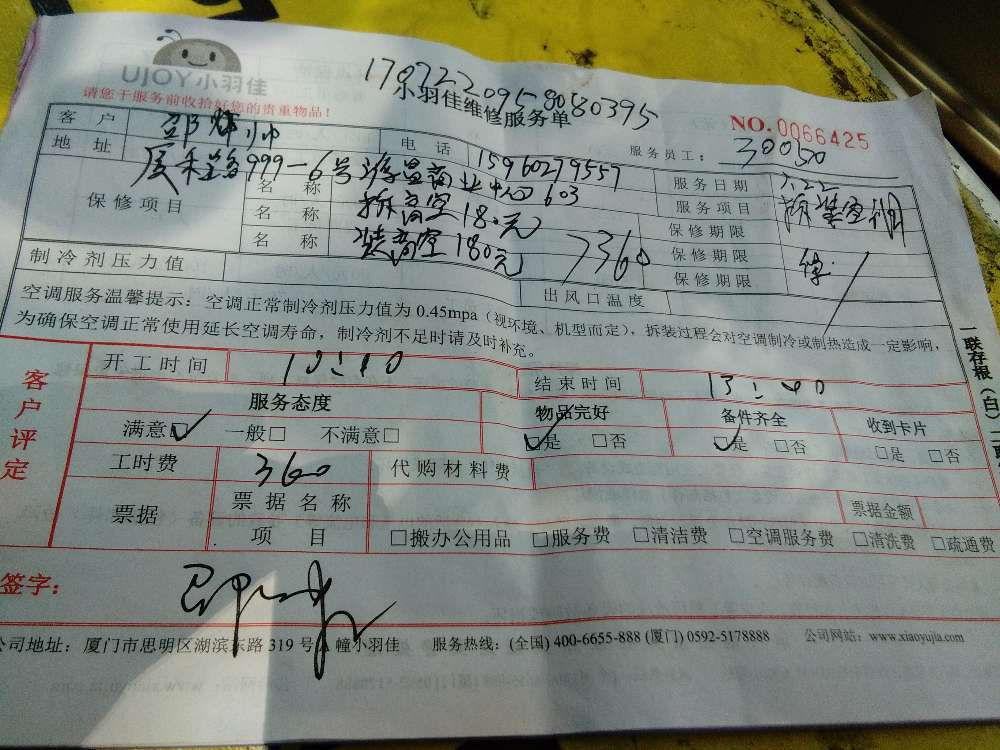 UJOY小羽佳
请您于服务前收拾好您的贵重物品！
1787220958080395
小羽佳维修服务单
NO.0066425
服务员工：30050
客户 邵
电话 15960279557
服务日期 7.22
地址 厦禾路999-6号 603
服务项目 拆装空调
保修项目
名称 拆 空 180元
保修期限
名称 装 空 180元 360
保修期限
名称
保修期限
制冷剂压力值
出风口温度
空调服务温馨提示：空调正常制冷剂压力值为 0.45mpa（视环境、机型而定），拆装过程会对空调制冷或制热造成一定影响，
为确保空调正常使用延长空调寿命，制冷剂不足时请及时补充。
一联存根（白）
客户评定
开工时间 10:10
结束时间 13:40
服务态度
物品完好
备件齐全
收到卡片
满意☑ 一般□ 不满意□
☑是 □否
☑是 □否
□是 □否
工时费 360
代购材料费
票据
票据名称
票据金额
项目 □搬办公用品 □服务费 □清洁费 □空调服务费 □清洗费 □疏通费
签字：
公司地址：厦门市思明区湖滨东路 319 号 幢小羽佳 服务热线：(全国) 400-6655-888 (厦门) 0592-5178888 公司网站：www.xiaoyujia.com